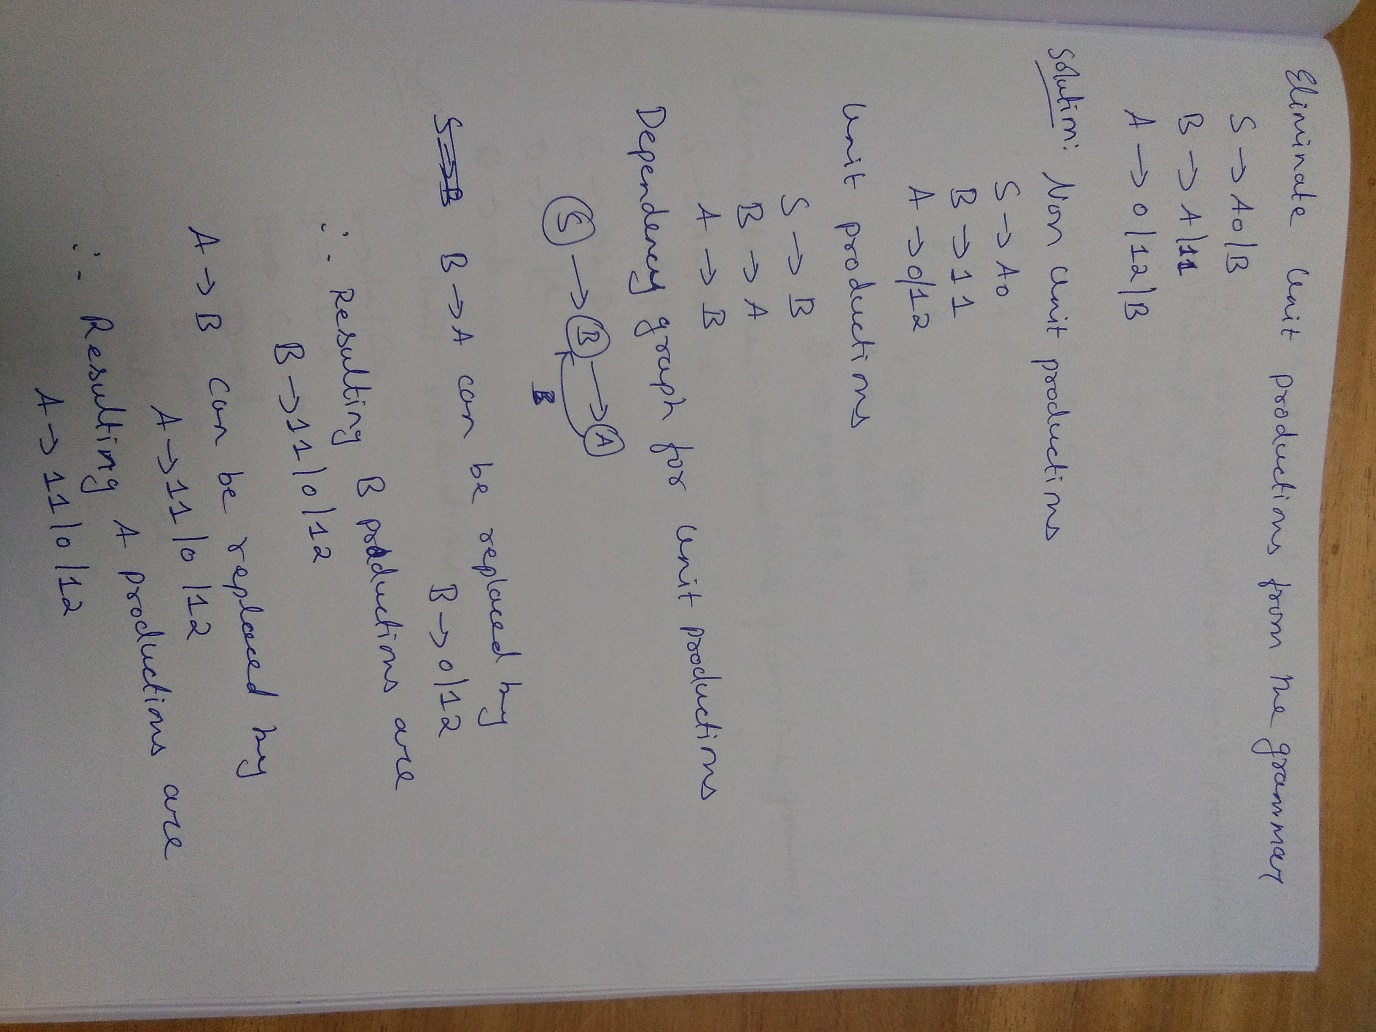 Eliminate Unit productions from the grammar
S → A0/B
B → A/11
A → 0/12/B
Solution: Non Unit productions
S → A0
B → 11
A → 0/12
Unit productions
S → B
B → A
A → B
Dependency graph for Unit productions
S → B → A
B
B → A can be replaced by
B → 0/12
∴ Resulting B productions are
B → 11/0/12
A → B can be replaced by
A → 11/0/12
∴ Resulting A productions are
A → 11/0/12